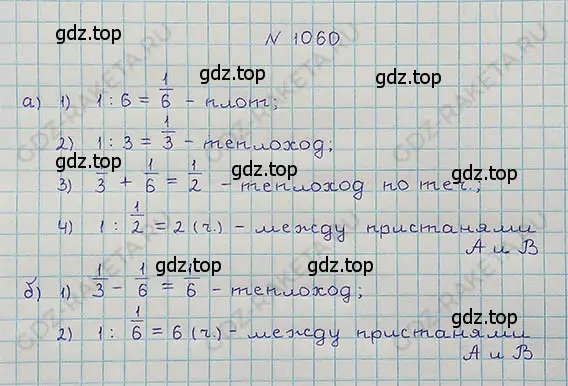 № 1060
gdz.top
gdz.top
а) 1) 1 : 6 = 1/6 - плот;
gdz.top
2) 1 : 3 = 1/3 - теплоход;
gdz.top
gdz.top
3) 1/3 + 1/6 = 1/2 - теплоход по теч.;
gdz.top
4) 1 : 1/2 = 2 (ч.) - между пристанями
А и В
gdz.top
gdz.top
б) 1) 1/3 - 1/6 = 1/6 - теплоход;
gdz.top
2) 1 : 1/6 = 6 (ч.) - между пристанями
А и В
gdz.top
gdz.top
GDZ-RAKETA.RU